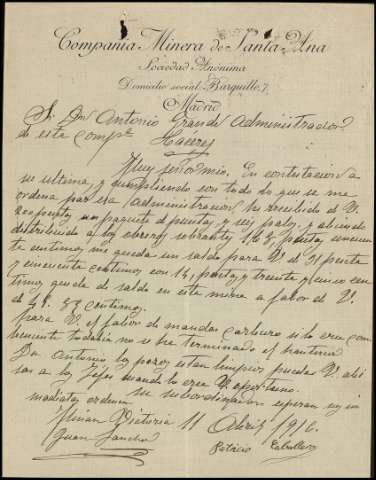 Compañia Minera de Santa Ana
Sociedad Anónima
Domicilio social: Barquillo, 7,
Madrid
S. Dn Antonio Grande Administrador
de esta compª Cáceres
Muy señor mio. En contestacion a
su ultima, y cumpliendo con todo lo que se me
ordena por esa Administracion he recibido de V.
un paquete de puntas y seis palas, y abiendo
distribuido a los obreros 163 pesetas
centimos, me queda un saldo para V. de 31 peseta
y cincuenta centimos con 14 pesetas y treinta y cinco cen
timos queda de saldo en este mes a fabor de V.
centimos.
para V. el fabor de mandar carburo si lo cree con
beniente todabia no se ha terminado el
Dn Antonio los pozos estan limpios puede V. abi
sar a los Jefes cuando lo crea V. oportuno.
su subordinados esperan su in
mediatas ordenes
Minas Victoria 11 Abril 1916.
Juan Sanchez Patricio Caballero